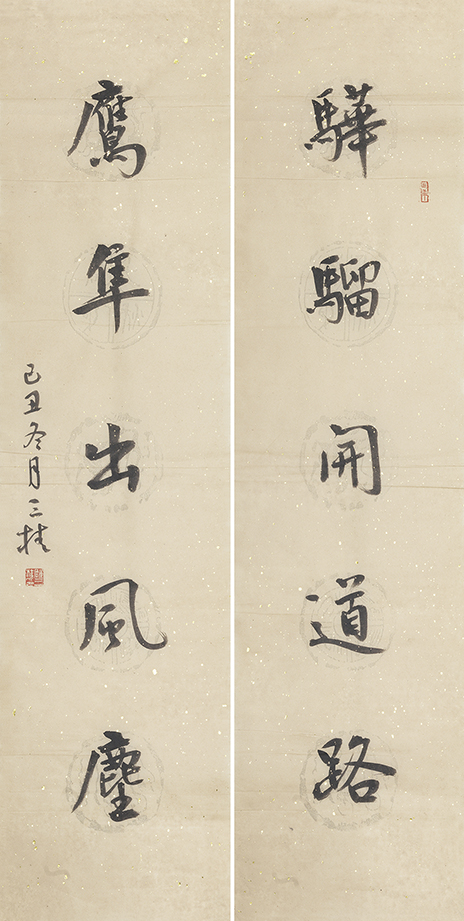 驊騮開道路
鷹隼出風塵
己丑冬月三桂